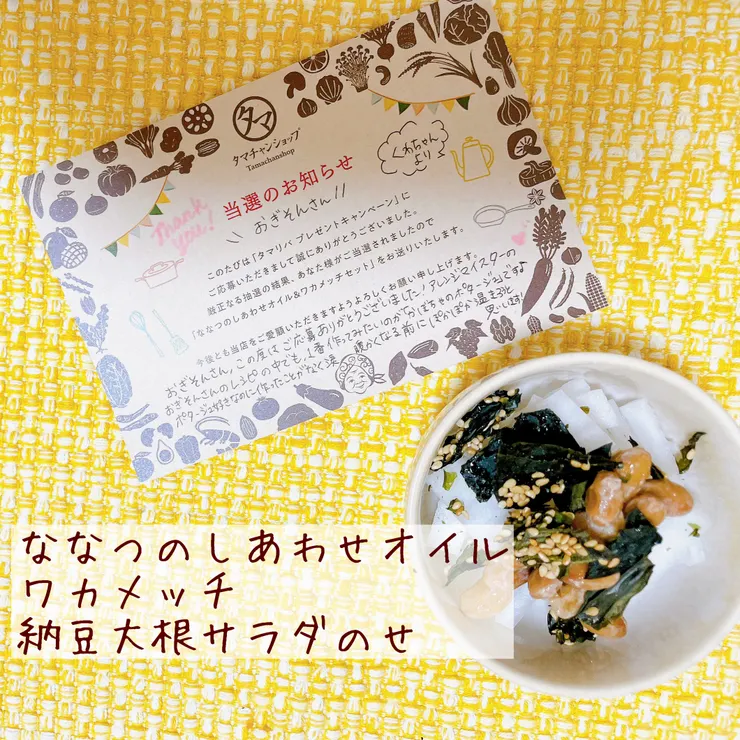 タマ
タマチャンショップ
Tamachanshop
くわちゃん
より
Thank
you!
当選のお知らせ
おぎそんさん!!
このたびは「タマリバ プレゼントキャンペーン」に
ご応募いただきまして誠にありがとうございました。
厳正なる抽選の結果、あなた様がご当選されましたので
「ななつのしあわせオイル&ワカメッチセット」をお送りいたします。
今後とも当店をご愛顧いただきますようよろしくお願い申し上げます。
おぎそんさん、この度はご応募ありがとうございました!アレンジマイスターの
おぎそんさんのレシピの中でも、1番作ってみたいのが「かぼちゃのポタージュ」ですよ
ポタージュ好きなのに作ったことがなく
暖かくなる前にぽかぽか温まろうと
思います
ななつのしあわせオイル
ワカメッチ
納豆大根サラダのせ